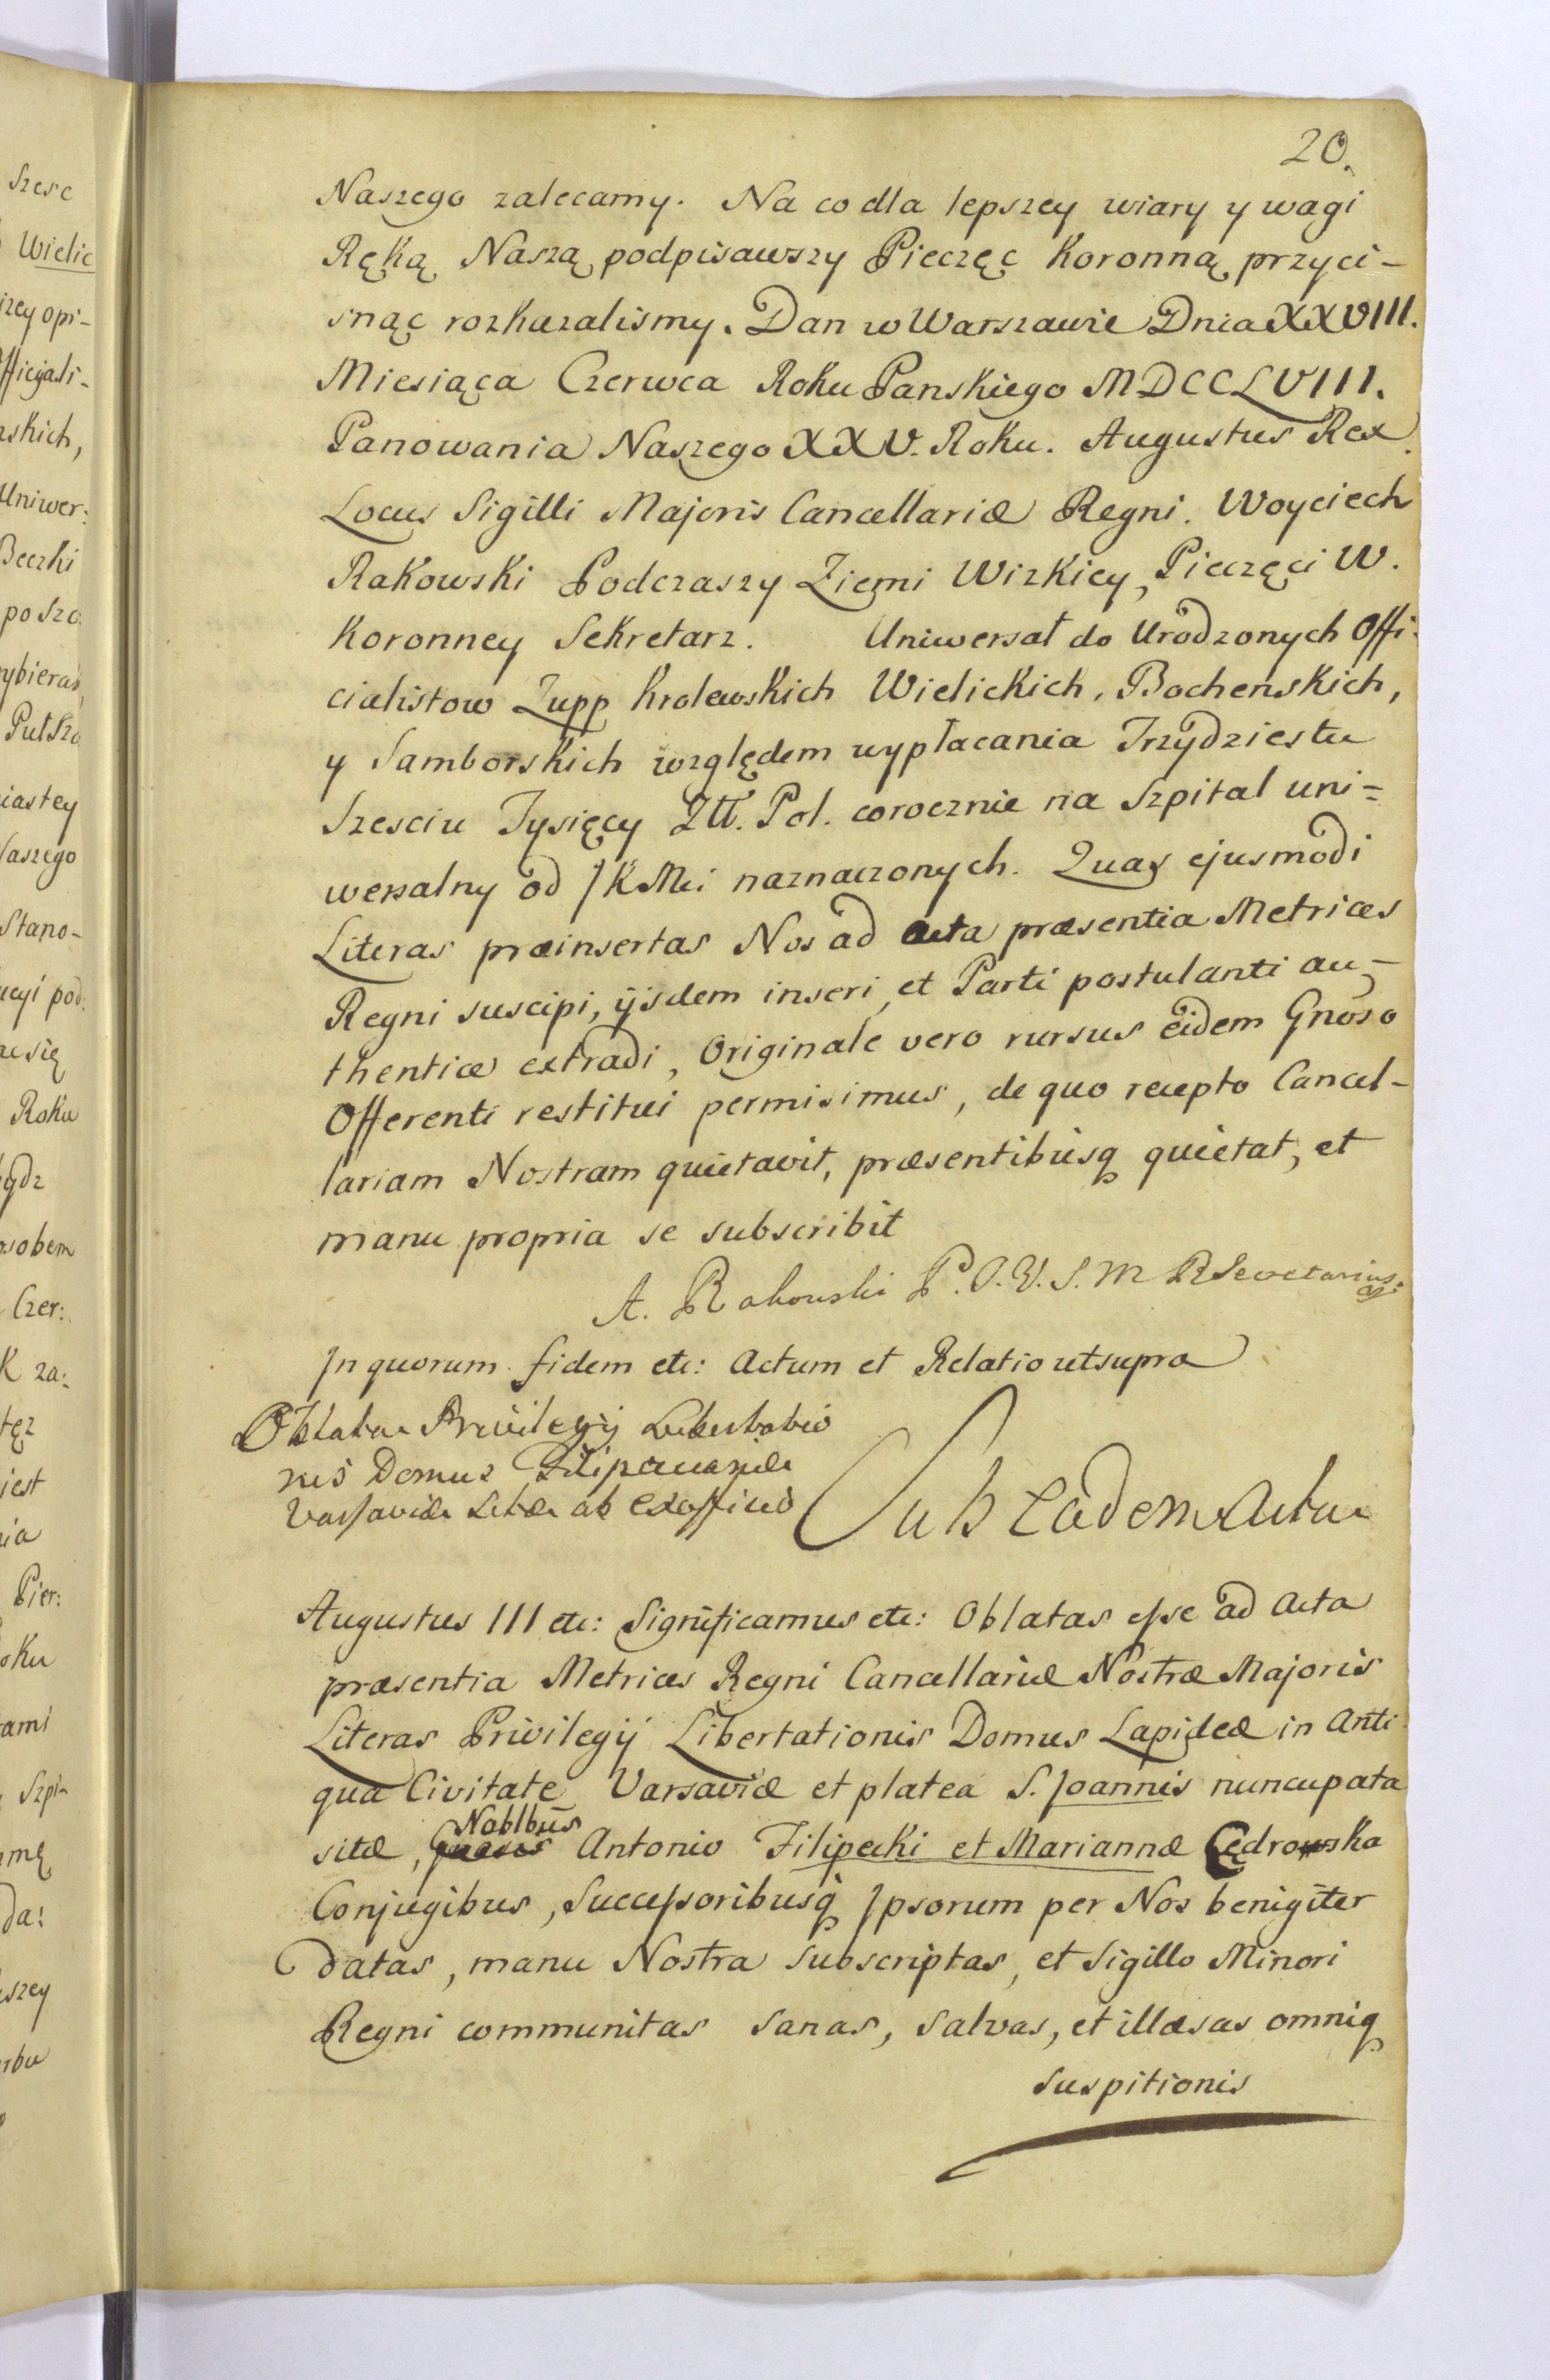 20.
Naszego zalecamy. Na co dla lepszey wiary y wagi
Ręką Naszą podpisawszy Pieczęc Koronną przyci-
snąc rozkazalismy. Dan w Warszawie Dnia XXVIII.
Miesiąca Czerwca Roku Panskiego MDCCLVIII.
Panowania Naszego XXV. Roku. Augustus Rex.
Locus Sigilli Majoris Cancellariæ Regni. Woyciech
Rakowski Podczaszy Ziemi Wizkiey, Pieczęci W.
Koronney Sekretarz. Uniwersał do Urodzonych Offi:
cialistow Zupp Krolewskich Wielickich, Bochenskich,
y Samborskich względem wypłacania Trzydziestu
Szesciu Tysięcy Złł. Pol. corocznie na Szpital uni=
wersalny od JKMci naznaczonych. Quas ejusmodi
Literas præinsertas Nos ad acta præsentia Metrices
Regni suscipi, ijsdem inseri, et Parti postulanti au-
thentice extradi, Originale vero rursus eidem Gnoso
Offerenti restitui permisimus, de quo recepto Cancel-
lariam Nostram quietavit, præsentibusq quietat, et
manu propria se subscribit
A. Rakowski P. O. V. S. M R Secretarius
In quorum fidem etc: Actum et Relatio ut supra
Oblata Privilegij Libertatio
nis Domus
Varsaviæ ex officio
Sub eadem Acta
Augustus III etc: Significamus etc: Oblatas esse ad Acta
præsentia Metrices Regni Cancellariæ Nostræ Majoris
Literas Privilegij Libertationis Domus Lapideæ in Anti
qua Civitate Varsaviæ et platea S. Joannis nuncupata
Noblbus
sitæ, Antonio Filipecki et Mariannæ Cędrowska
Conjugibus, Successoribusq Ipsorum per Nos benigiter
datas, manu Nostra subscriptas, et Sigillo Minori
Regni communitas sanas, salvas, et illæsas omniq
suspitionis